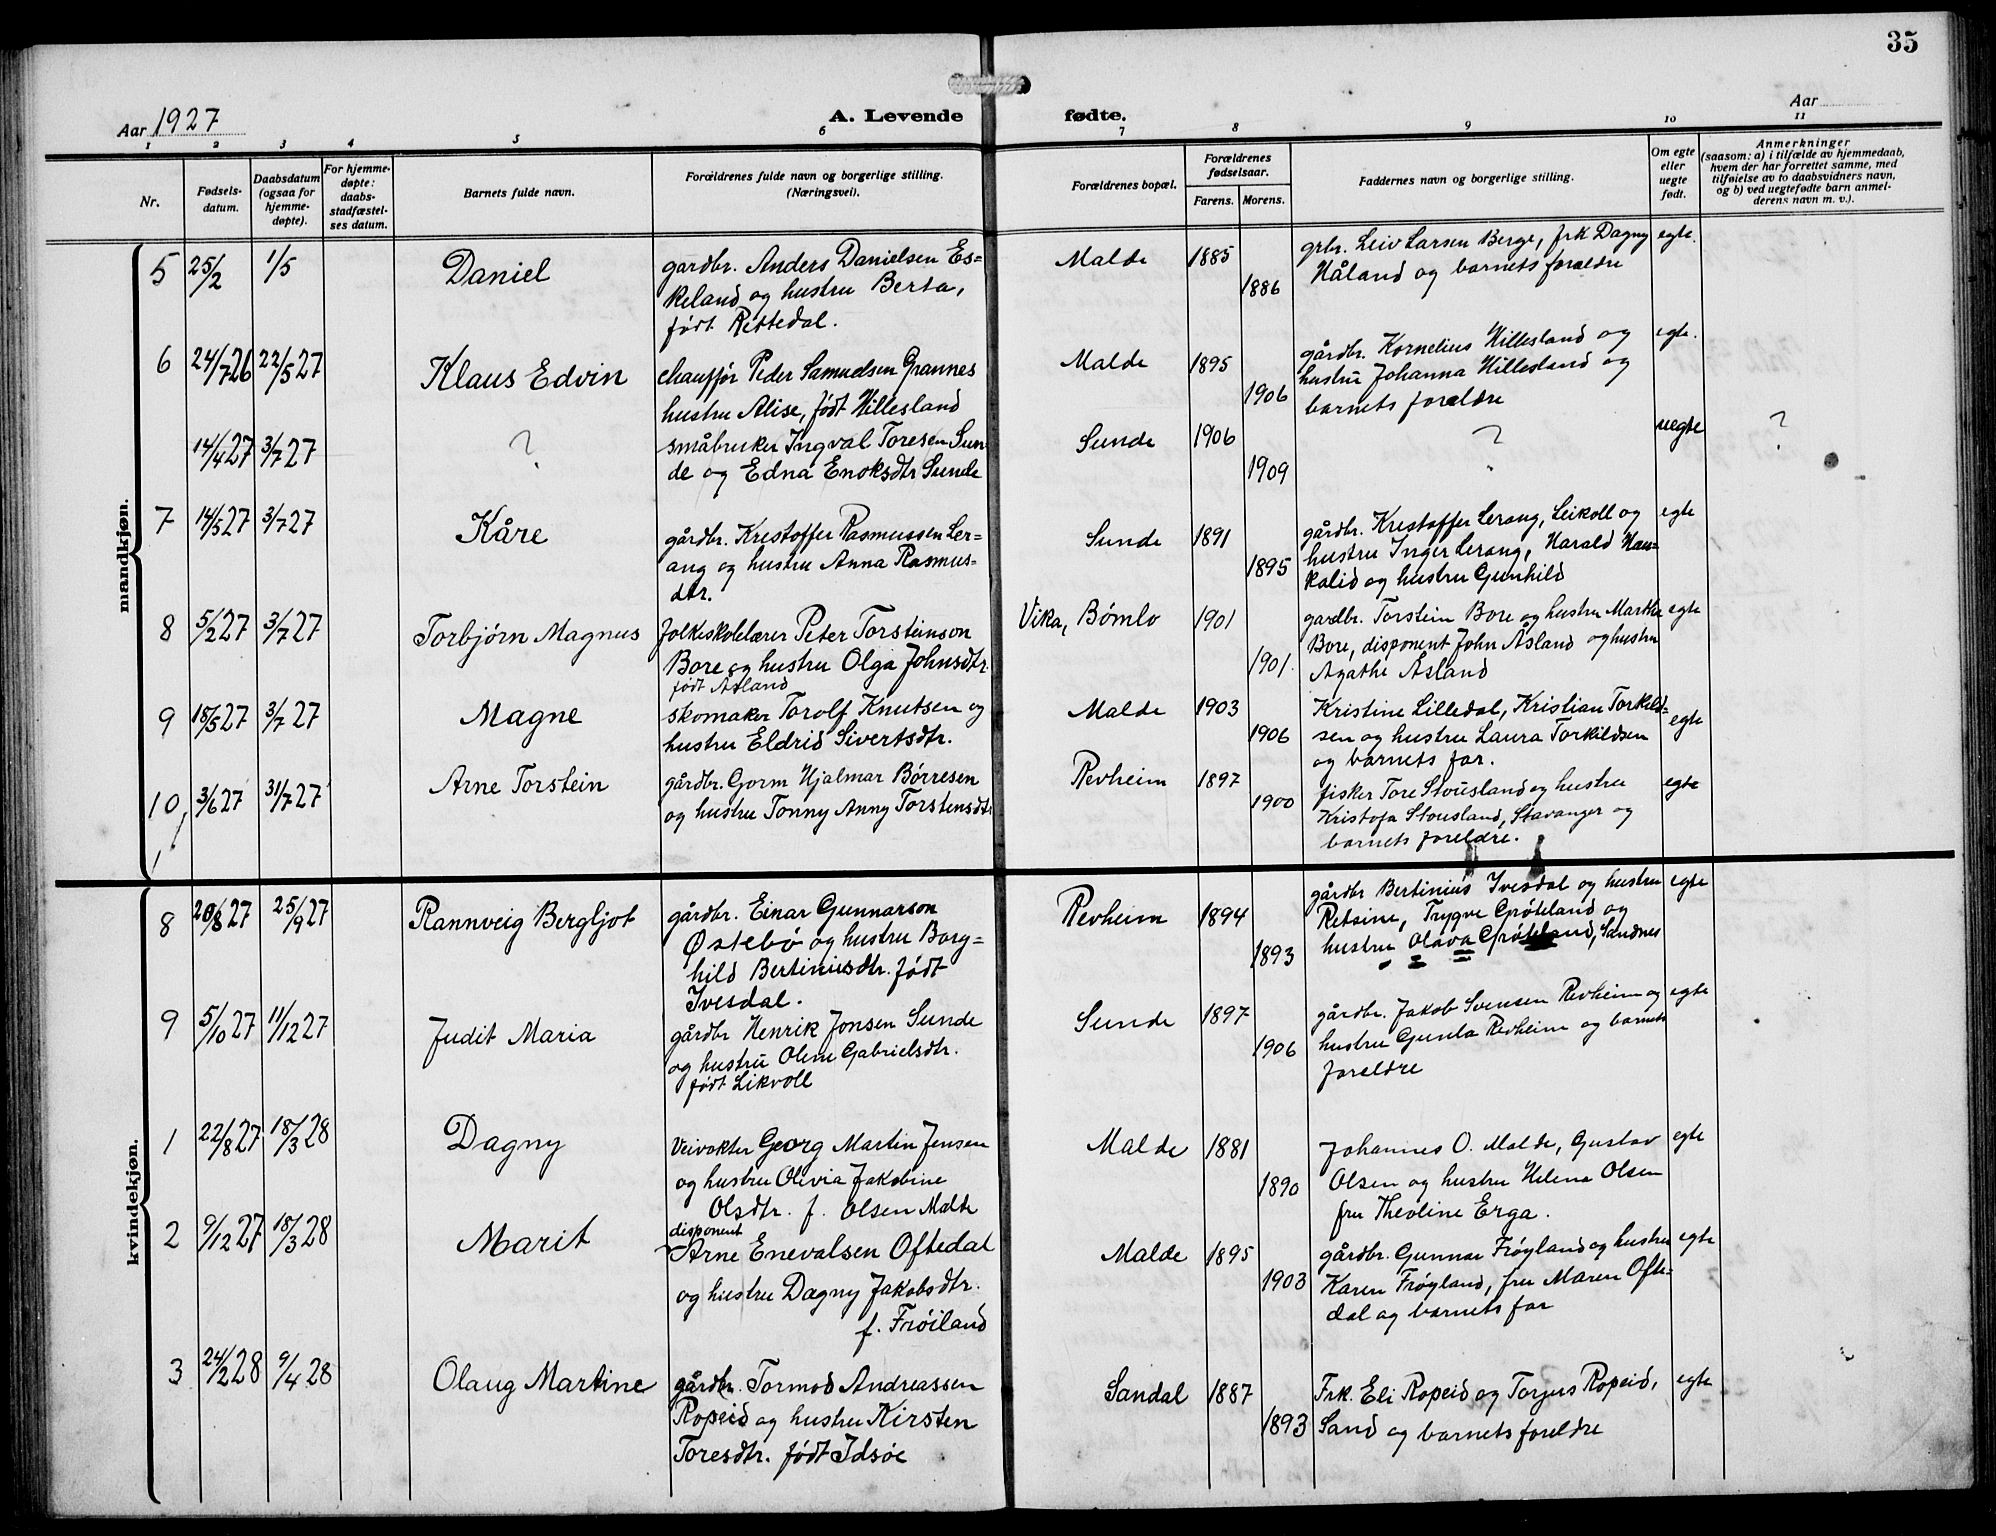 35
Aar 1927
A. Levende fødte.
Aar
1 2 3 4 5 6 7 8 9 10 11
Nr.
Fødsels-
datum.
Daabsdatum
(ogsaa for
hjemme-
døpte).
For hjemme-
døpte:
daabs-
stadfæstel-
ses datum.
Barnets fulde navn.
Forældrenes fulde navn og borgerlige stilling.
(Næringsvei).
Forældrenes bopæl.
Forældrenes
fødselsaar.
Farens. Morens.
Faddernes navn og borgerlige stilling.
Om egte
eller
uegte
født.
Anmerkninger
(saasom: a) i tilfælde av hjemmedaab,
hvem der har forrettet samme, med
tilføielse av to daabsvidners navn,
og b) ved uegtefødte barn anmel-
derens navn m. v.).
mandkjøn.
5 25/2 1/5 Daniel
gardbr. Anders Danielsen Es=
keland og hustru Berta,
født Rettedal.
Malde 1885 1886
grbr. Leiv Larsen Berge, frk Dagny
Håland og barnets forældre
egte.
6 24/7 26 22/5 27 Klaus Edvin
chauffør Peder Samuelsen Grannes
hustru Alise, født Hillesland
Malde 1895 1906
gårdbr. Kornelius Hillesland og
hustru Johanna Hillesland og
barnets forældre
egte.
14/4 27 3/7 27 ?
småbruker Ingval Toresen Sun-
de og Edna Enoksdtr Sunde
Sunde 1906 1909
?
uegte
?
7 14/5 27 3/7 27 Kåre
gårdbr. Krestoffer Rasmussen Ler=
ang og hustru Anna Rasmus-
dtr.
Sunde 1891 1895
gårdbr. Krestoffer Lerang, Leikoll og
hustru Inger Lerang, Harald Hau-
kalid og hustru Gunhild
egte
8 5/2 27 3/7 27 Torbjørn Magnus
folkeskolelærer Peter Torsteinson
Bore og hustru Olga Johnsdtr.
født Åsland
Vika, Bømlo 1901 1901.
gardbr. Torstein Bore og hustru Martha
Bore, disponent John Åsland og hustru
Agathe Åsland
egte
9 18/5 27 3/7 27 Magne
skomaker Torolf Knutsen og
hustru Eldrid Sivertsdtr.
Malde 1903 1906
Kristine Lilledal, Kristian Torkild=
sen og hustru Laura Torkildsen
og barnets far.
egte
10 3/6 27 31/7 27 Arne Torstein
gårdbr. Gorm Hjalmar Børresen
og hustru Tonny Anny Torstensdtr
Revheim 1897 1900
fisker Tore Stousland og hustru
Kristofa Stousland, Stavanger og
barnets foreldre.
egte
1
kvindekjøn.
8 20/8 27 25/9 27 Rannveig Bergljot
gårdbr. Einar Gunnarson
Østebø og hustru Borg=
hild Bertiniusdtr. født
Ivesdal.
Revheim 1894 1893
gårdbr Bertinius Ivesdal og hustru
Retsine, Trygve Grøteland og
hustru Olava Grøteland, Sandnes
egte
9 5/10 27 11/12 27 Judit Maria
gårdbr Henrik Jonsen Sunde
og hustru Olene Gabrielsdtr.
født Likvoll
Sunde 1897 1906
gårdbr. Jakob Svensen Revheim og
hustru Gunla Revheim og barnets
foreldre
egte
1 22/8 27 18/3 28 Dagny
Veivokter Georg Martin Jensen
og hustru Olivia Jakobine
Olsdtr. f. Olsen Malde
Malde 1881 1890
Johannes O. Malde, Gustav
Olsen og hustru Helena Olsen
fru Theoline Erga.
egte
2 9/12 27 18/3 28 Marit
disponent
Arne Enevalsen Oftedal
og hustru Dagny Jakobsdtr.
f. Frøiland
Malde 1895 1903
gårdbr. Gunnar Frøyland og hustru
Karen Frøyland, fru Maren Ofte-
dal og barnets far
egte
3 24/2 28 9/4 28 Olaug Martine
gårdbr. Tormod Andreassen
Ropeid og hustru Kirsten
Toresdtr. født Idsøe
Sandal 1887 1893
Frk. Eli Ropeid og Torjus Ropeid,
Sand og barnets foreldre
egte